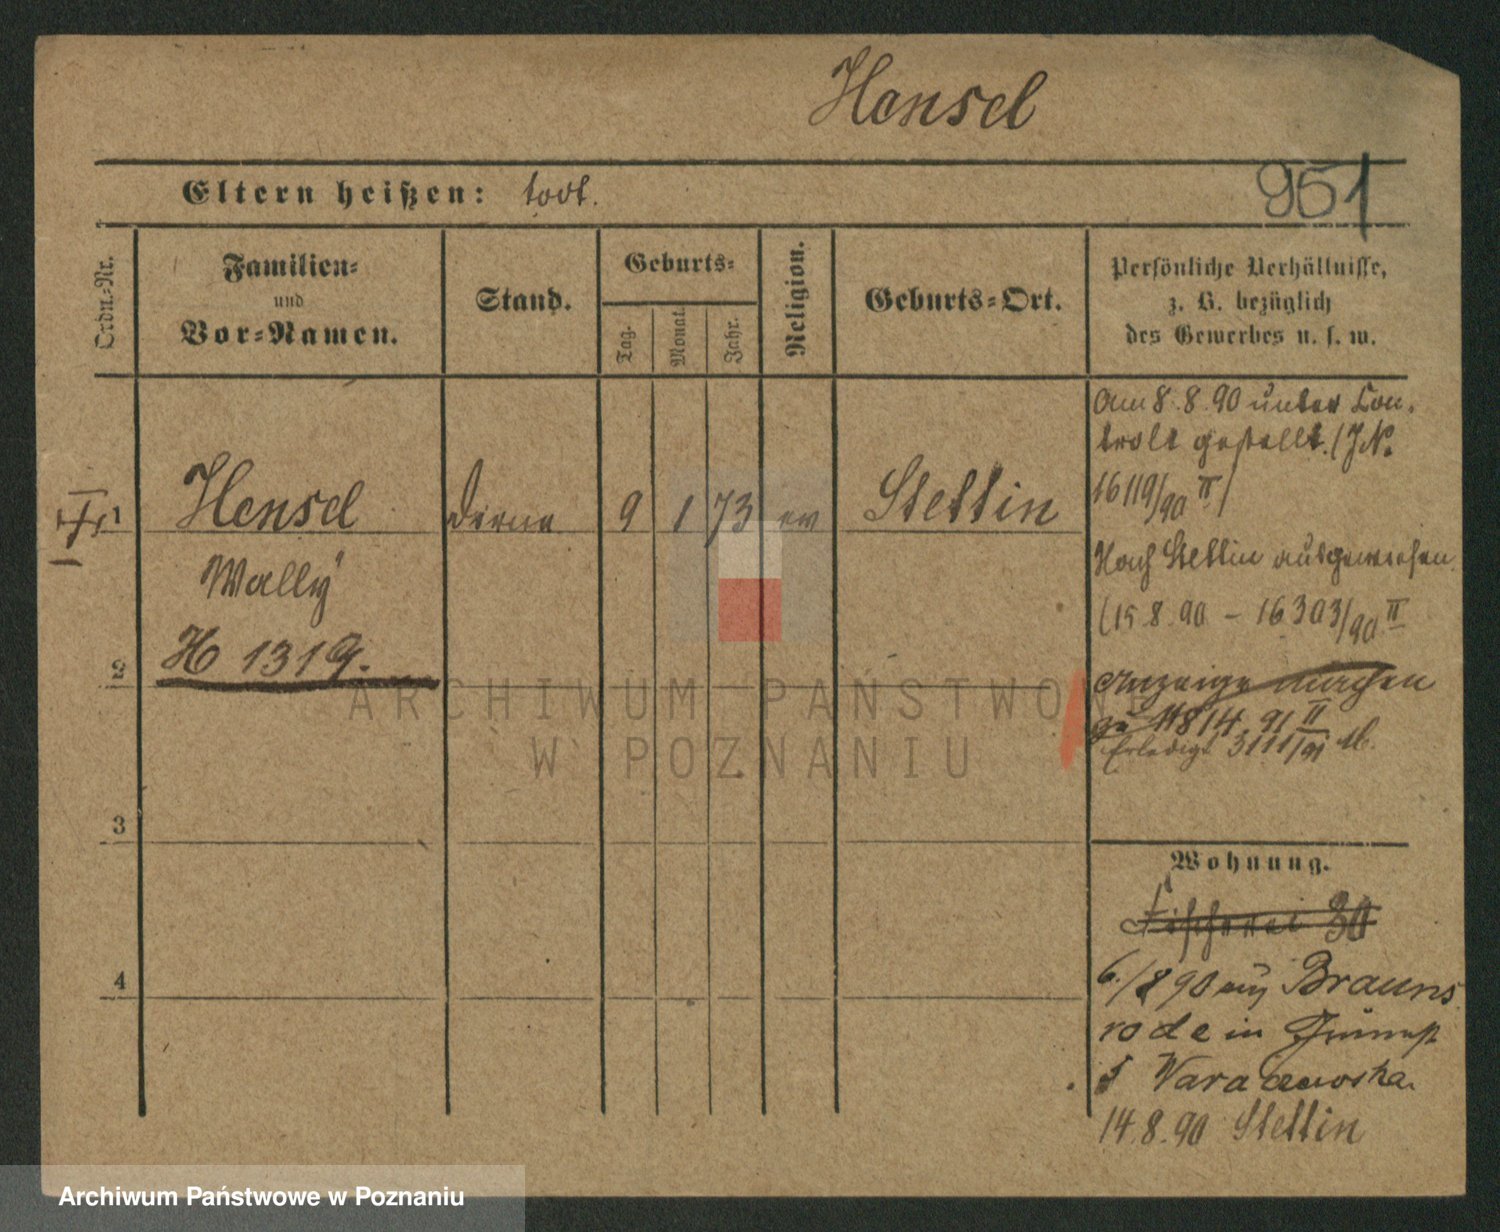 Hensel
951
Eltern heißen: todt.
Ordn.-Nr.
Familien-
und
Vor-Namen.
Stand.
Geburts-
Tag.
Monat.
Jahr.
Religion.
Geburts-Ort.
Persönliche Verhältnisse,
z. B. bezüglich
des Gewerbes u. s. w.
1
Hensel
Dirne
9
1
73
ev
Stettin
Wally
H 1319.
2
3
4
Am 8.8.90 unter Con-
trole gestellt. (J.N.
16119/90 II)
Nach Stettin ausgewiesen
(15.8.90 – 16303/90 II
Anzeige machen
zu 11814. 91 II
Erledigt 3111/91
Wohnung.
Fischerei 30
6./8 90 Brauns
rode in
14.8.90 Stettin
ARCHIWUM PAŃSTWOWE
W POZNANIU
Archiwum Państwowe w Poznaniu